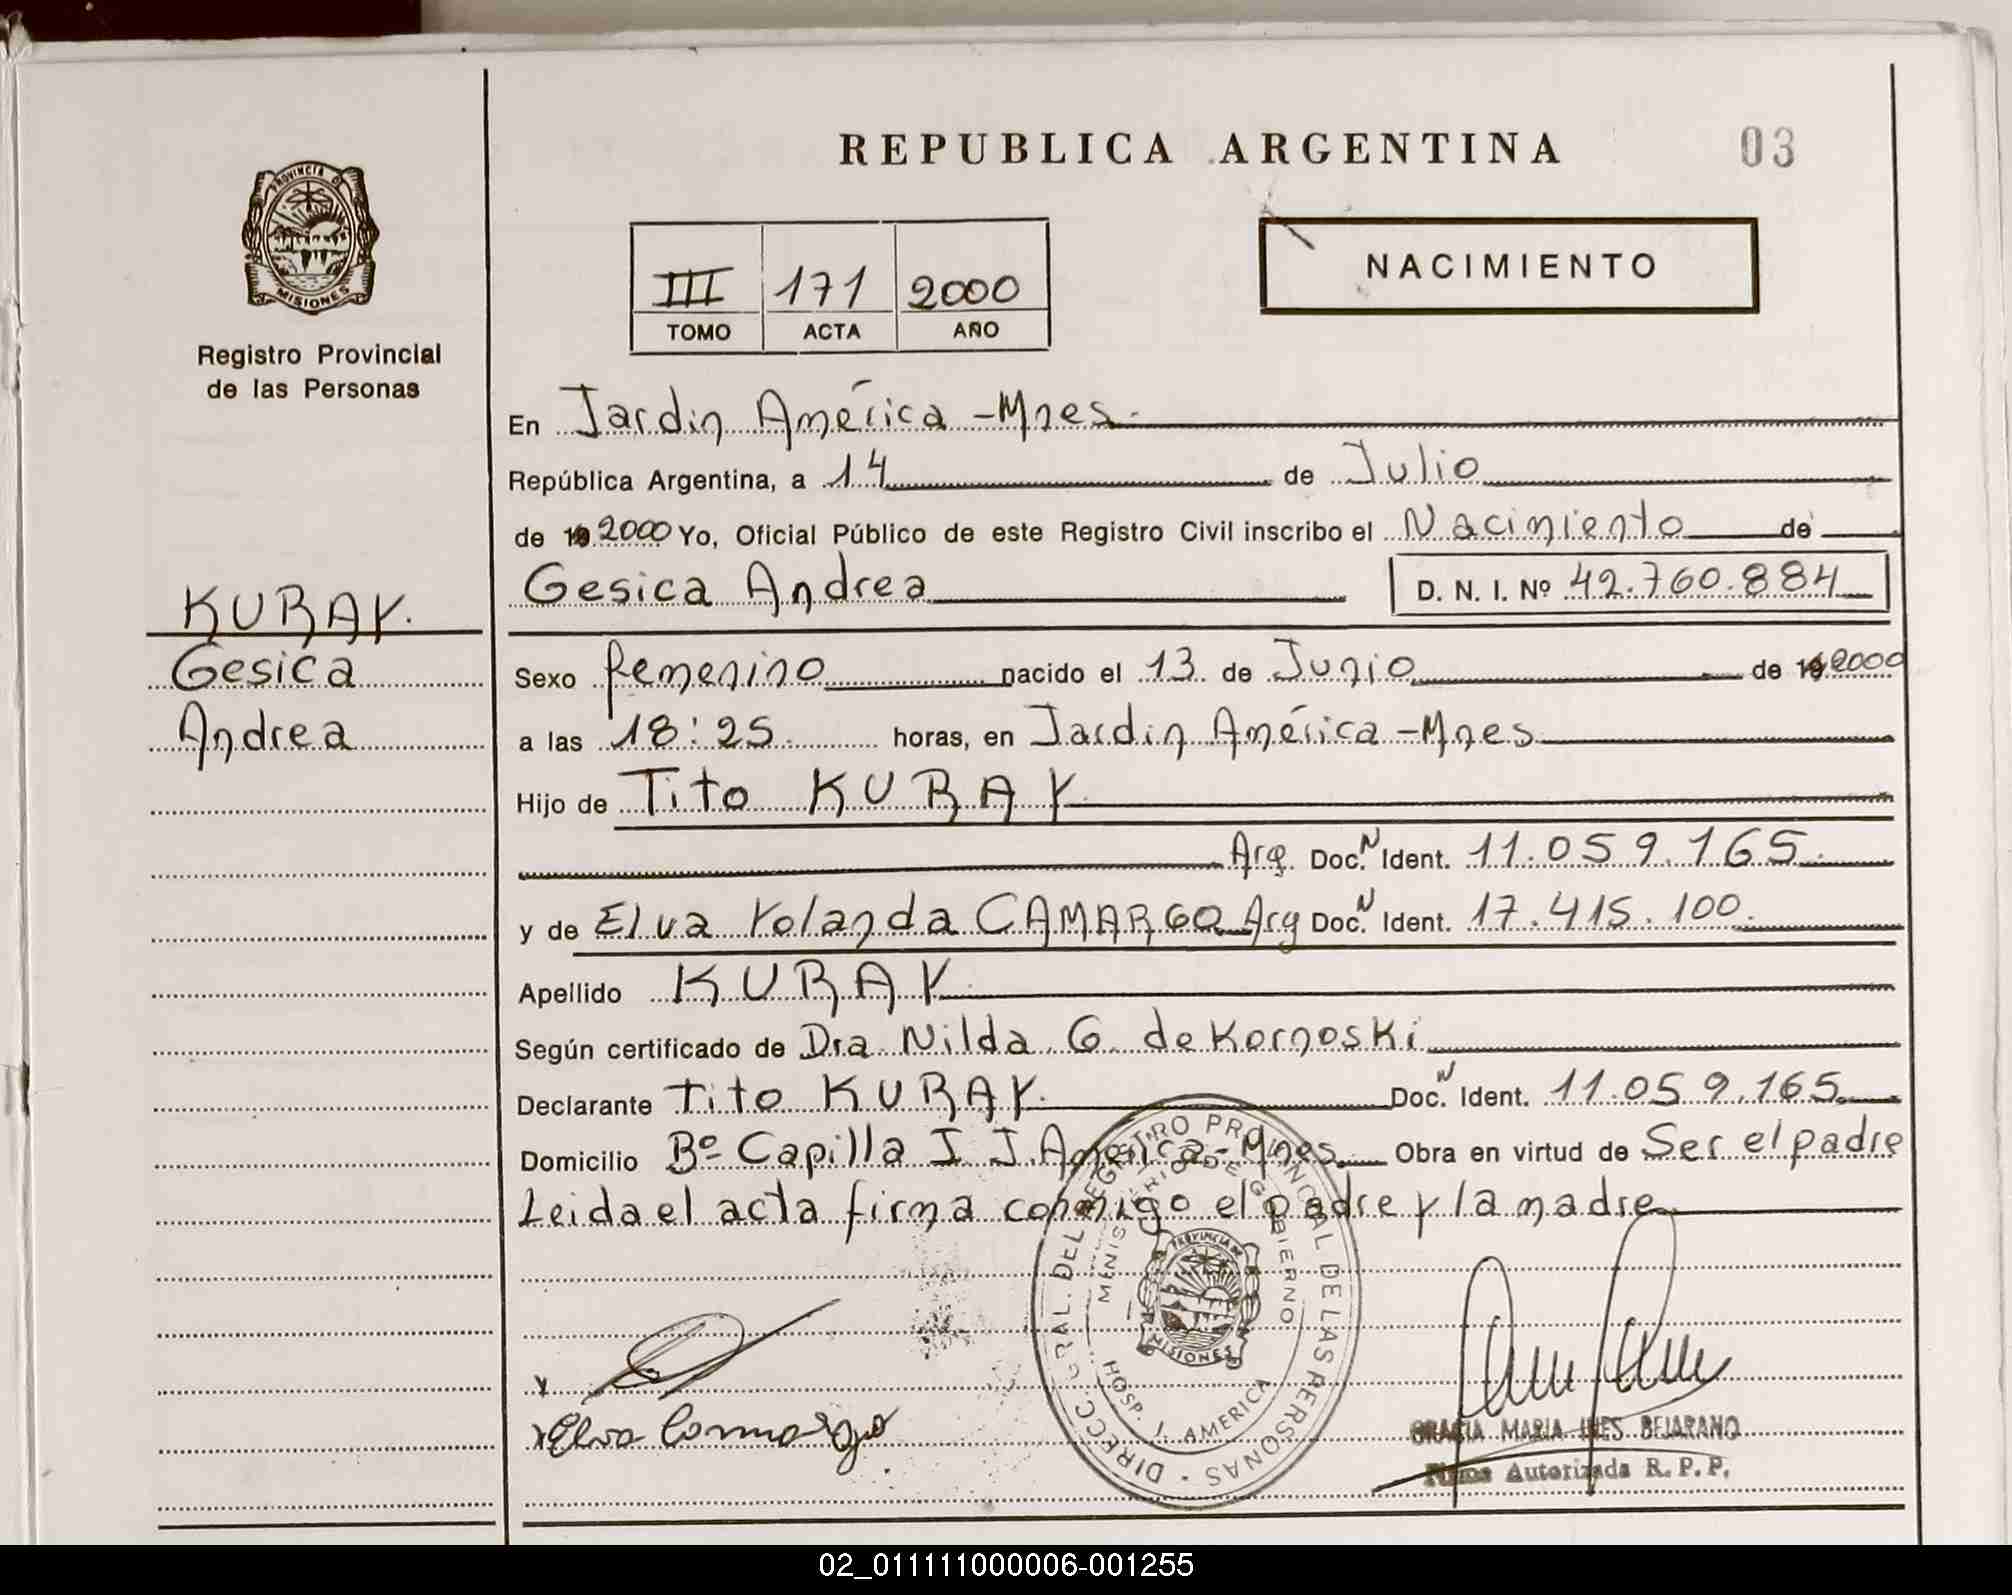 REPUBLICA ARGENTINA
03
PROVINCIA DE
MISIONES
Registro Provincial
de las Personas
III 171 2000
TOMO ACTA AÑO
NACIMIENTO
En Jardin América - Mnes.
República Argentina, a 14 de Julio
de 19 2000 Yo, Oficial Público de este Registro Civil inscribo el Nacimiento de
Gesica Andrea D. N. I. Nº 42.760.884
KURAY.
Gesica
Andrea
Sexo femenino nacido el 13 de Junio de 19 2000
a las 18:25 horas, en Jardin América - Mnes
Hijo de Tito KURAY
Arg. Doc. N Ident. 11.059.165.
y de Elva Yolanda CAMARGO Arg Doc. N Ident. 17.415.100.
Apellido KURAY
Según certificado de Dra Nilda G. de Kornoski
Declarante Tito KURAY. Doc. N Ident. 11.059.165.
Domicilio Bº Capilla I J. América - Mnes. Obra en virtud de Ser el padre
Leida el acta firma conmigo el padre y la madre
DIRECC. GRAL. DEL REGISTRO PROVINCIAL DE LAS PERSONAS
MINISTERIO DE GOBIERNO
PROVINCIA DE
MISIONES
HOSP. J. AMERICA
Elva Camargo
GRACIA MARIA INES BEJARANO
Firma Autorizada R. P. P.
02_011111000006-001255